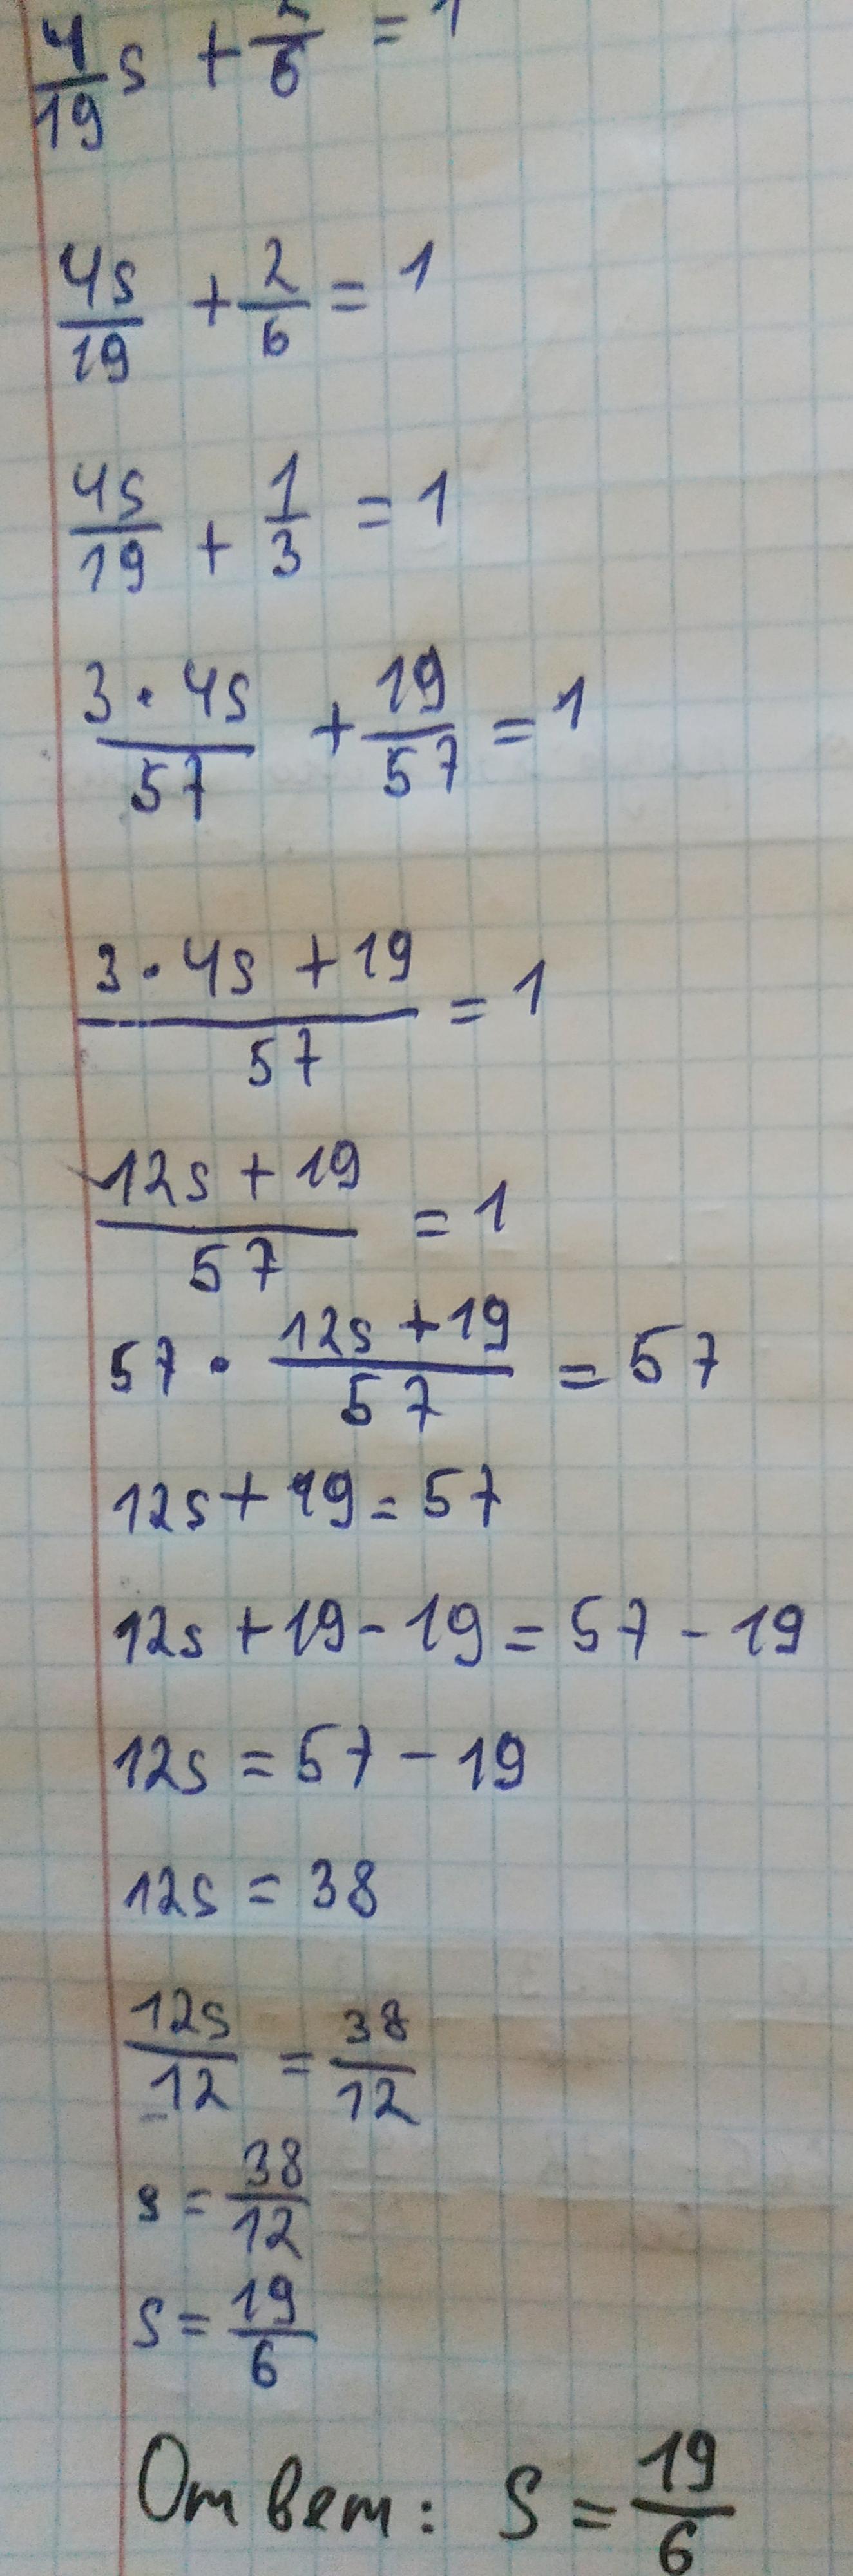 4/19 s + 2/6 = 1
4s/19 + 2/6 = 1
4s/19 + 1/3 = 1
3·4s/57 + 19/57 = 1
3·4s + 19/57 = 1
12s + 19/57 = 1
57 · 12s + 19/57 = 57
12s + 19 = 57
12s + 19 - 19 = 57 - 19
12s = 57 - 19
12s = 38
12s/12 = 38/12
s = 38/12
s = 19/6
Ответ: s = 19/6